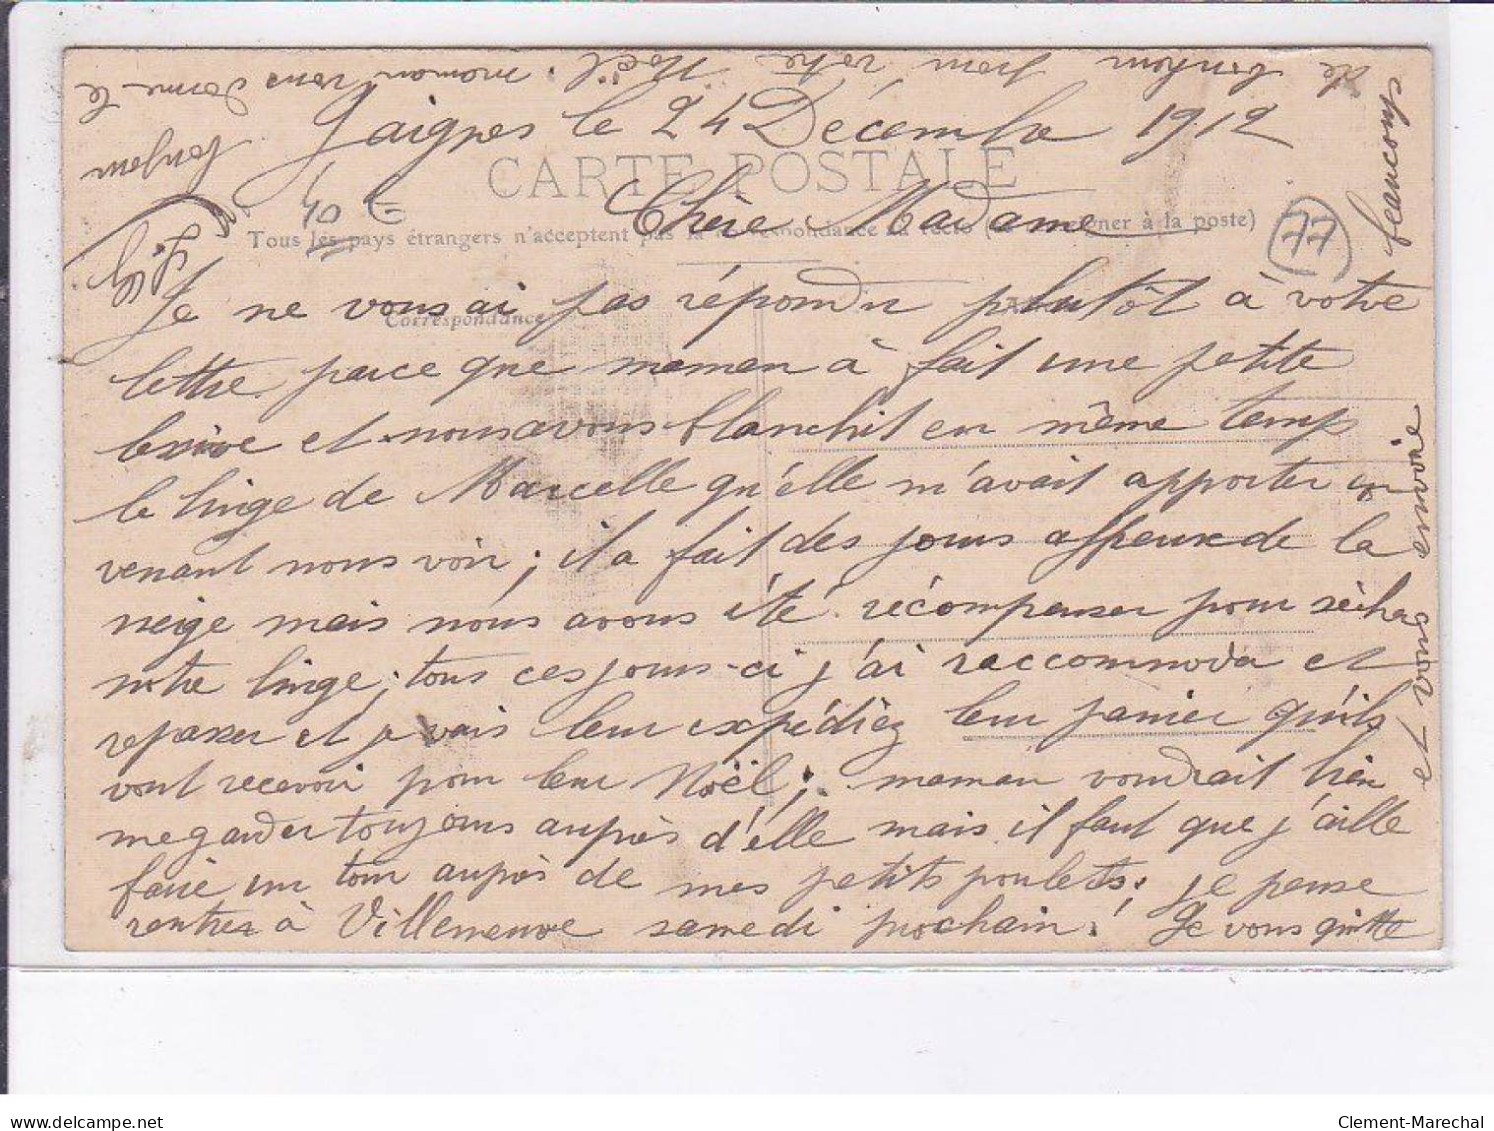 Jaignes le 24 Décembre 1912
CARTE POSTALE
Chère Madame
Tous les pays étrangers n'acceptent pas la correspondance au recto (se renseigner à la poste)
40 F
77
Correspondance
Je ne vous ai pas répondu plutôt à votre
lettre parce que maman à fait une petite
lessive et nous avons blanchit en même temps
le linge de Marcelle qu'elle m'avait apporter en
venant nous voir; il a fait des jours affeux de la
neige mais nous avons été récompenser pour sécher
notre linge; tous ces jours-ci j'ai raccommoda et
repasser et je vais leur expédiez leur panier qu'ils
vont recevoir pour leur Noël; maman voudrait bien
me garder toujours auprès d'elle mais il faut que j'aille
faire un tour auprès de mes petits poulets; je pense
rentrez à Villeneuve samedi prochain! Je vous quitte
et vous envoie
beaucoup
de bonheur pour votre Noël. maman vous donne le
bonjour